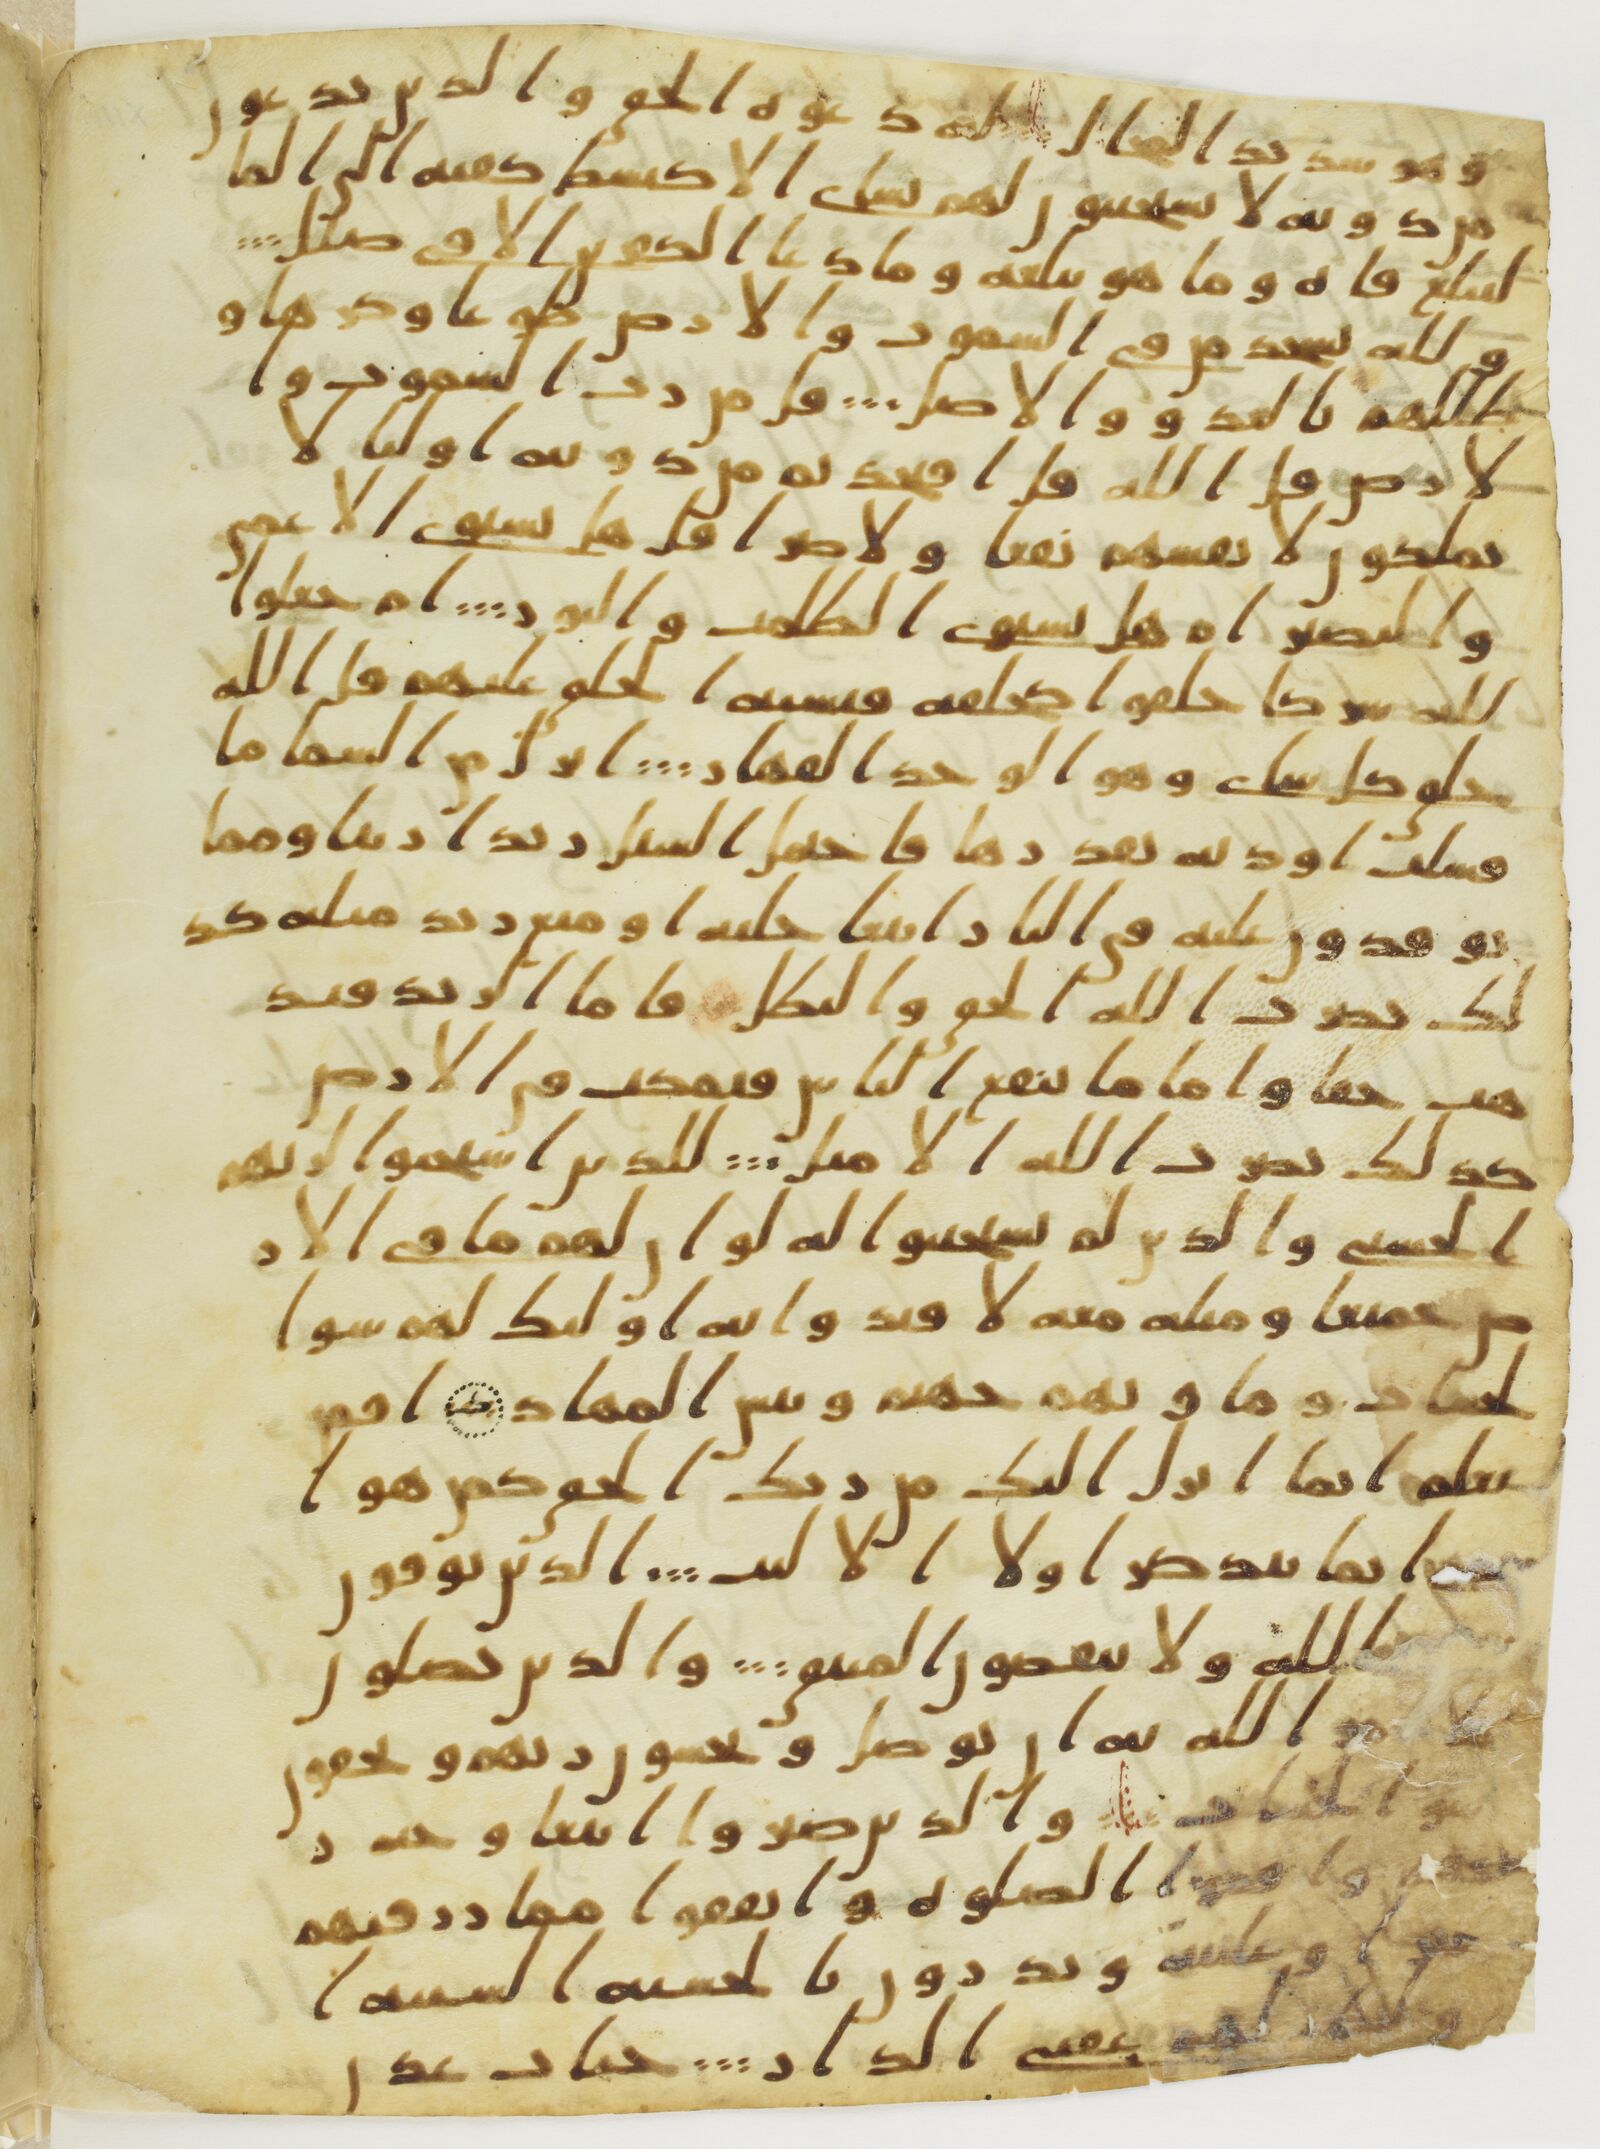 وهو سديد المحال له دعوه الحق والذين يدعون
من دونه لا يستجيبون لهم بشاى الا كبسط كفيه الى الما
ليبلغ فاه وما هو ببلغه وما دعا الكفرين الا فى ضلل
ولله يسجد من فى السموت والارض طوعا وكرها و
ظللهم بالغدو والاصل قل من رب السموت وا
لارض قل الله قل افتخذتم من دونه اوليا لا
يملكون لانفسهم نفعا ولا ضرا قل هل يستوى الاعمى
والبصير ام هل تستوى الظلمت والنور ام جعلوا
لله شركا خلقوا كخلقه فتشبه الخلق عليهم قل الله
خلق كل شاى وهو الوحد القهار انزل من السما ما
فسلت اوديه بقدرها فاحتمل السيل زبدا رابيا ومما
توقدون عليه فى النار ابتغا حليه او متع زبد مثله كذ
لك يضرب الله الحق والبطل فاما الزبد فيذ
هب جفا واما ما ينفع الناس فيمكث فى الارض
كذلك يضرب الله الامثل للذين استجبوا لربهم
الحسنى والذين لم يستجيبوا له لو ان لهم ما فى الار
ض جميعا ومثله معه لافتدوا به اوليك لهم سوا
لحساب وماويهم جهنم وبيس المهاد افمن
يعلم انما انزل اليك من ربك الحق كمن هو ا
عمى انما يتذكر اولا الالبب الذين يوفون
بعهد الله ولا ينقضون الميثق والذين يصلون
ما امر الله به ان يوصل ويخشون ربهم ويخفون
سو الحساب والذين صبروا ابتغا وجه ر
بهم واقموا الصلوه وانفقوا مما رزقنهم
سرا وعلنيه ويدرون بالحسنه السييه ا
وليك لهم عقبى الدار جنات عدن